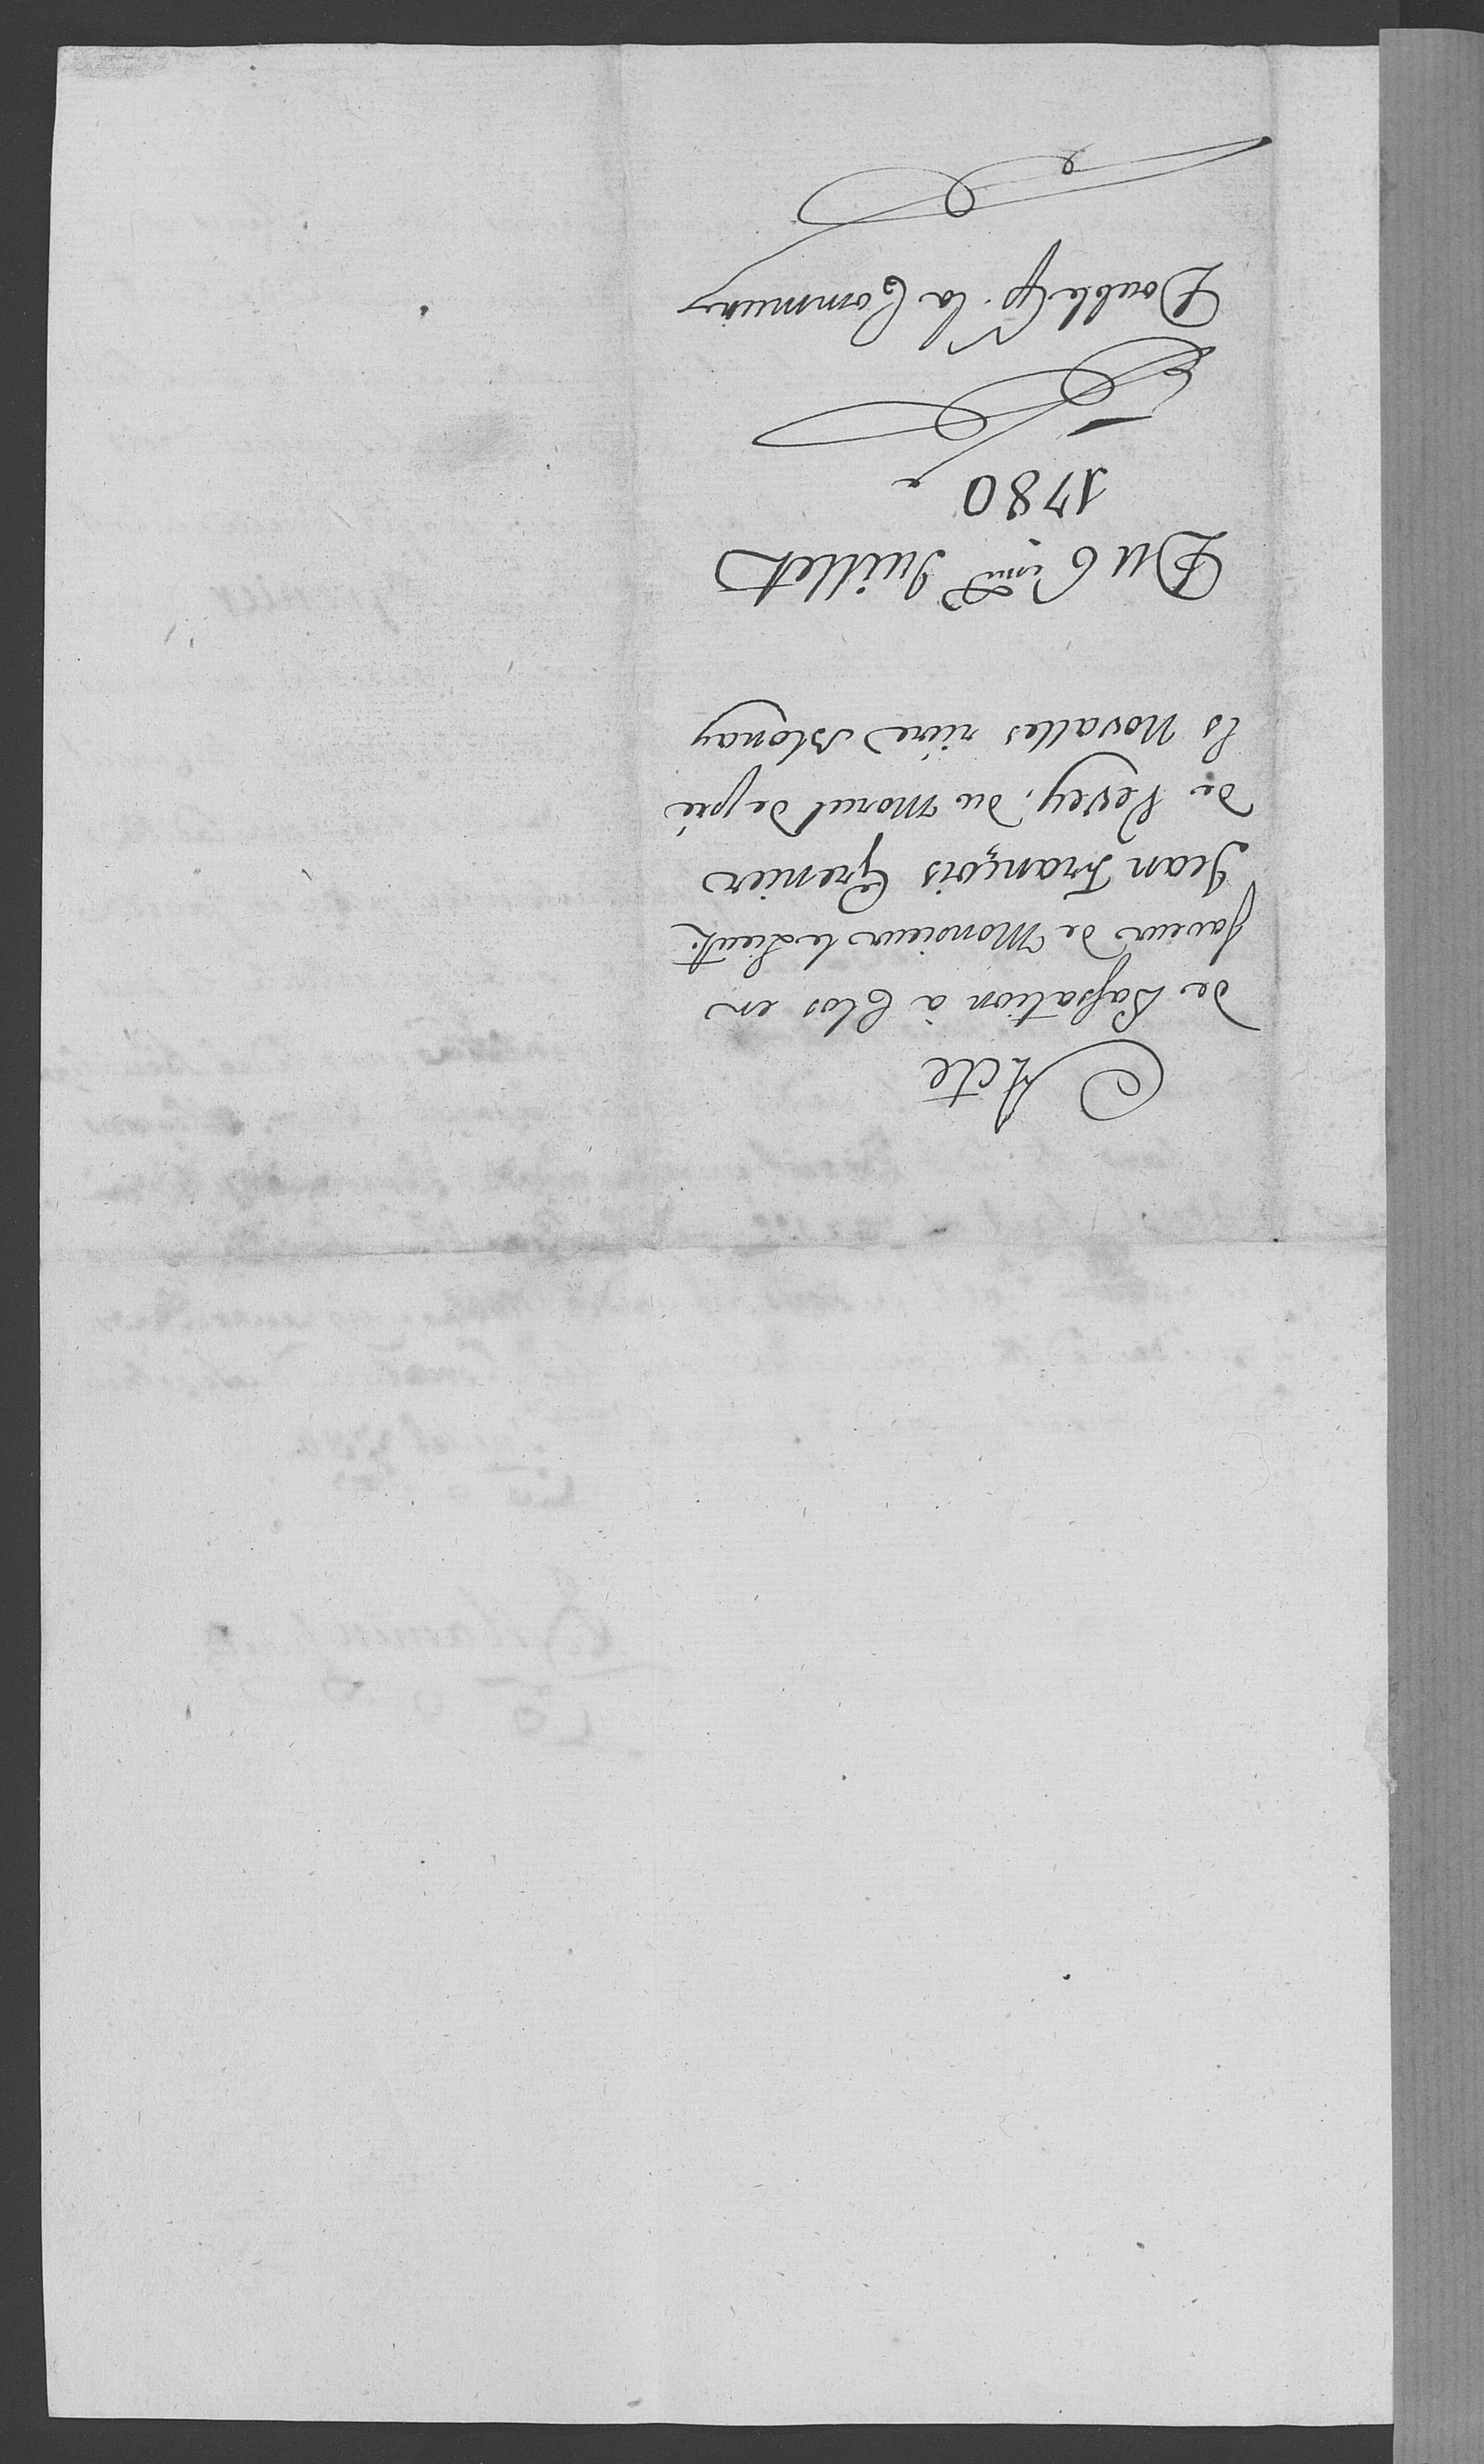 Acte
de Passation à Clos en
faveur de Monsieur le Lieut.
Jean François Grenier
de Vevey, du Morcel de pré
Es Novalles riere Blonay
Du 6.me Juillet
1780
Double p. la Commune